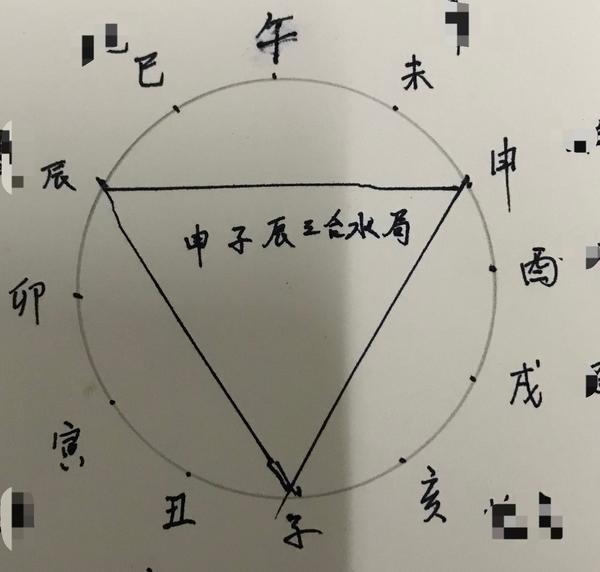 午
巳
未
辰
申
申子辰三合水局
卯
酉
戌
寅
丑
子
亥